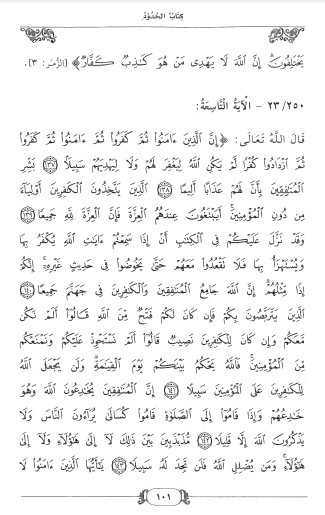 كِتَابُ الحُدُودِ
يَخْتَلِفُونَ إِنَّ اللَّهَ لَا يَهْدِي مَنْ هُوَ كَاذِبٌ كَفَّارٌ﴾ [الزُّمَر: ٣].
٢٣/٢٥٠ - الْآيَةُ التَّاسِعَةُ:
قَالَ اللهُ تَعَالَى: ﴿إِنَّ الَّذِينَ ءَامَنُوا ثُمَّ كَفَرُوا ثُمَّ ءَامَنُوا ثُمَّ كَفَرُوا
ثُمَّ ازْدَادُوا كُفْرًا لَمْ يَكُنِ اللَّهُ لِيَغْفِرَ لَهُمْ وَلَا لِيَهْدِيَهُمْ سَبِيلًا ﴿١٣٧﴾ بَشِّرِ
الْمُنَافِقِينَ بِأَنَّ لَهُمْ عَذَابًا أَلِيمًا ﴿١٣٨﴾ الَّذِينَ يَتَّخِذُونَ الْكَافِرِينَ أَوْلِيَاءَ
مِن دُونِ الْمُؤْمِنِينَ أَيَبْتَغُونَ عِندَهُمُ الْعِزَّةَ فَإِنَّ الْعِزَّةَ لِلَّهِ جَمِيعًا ﴿١٣٩﴾
وَقَدْ نَزَّلَ عَلَيْكُمْ فِي الْكِتَابِ أَنْ إِذَا سَمِعْتُمْ ءَايَاتِ اللَّهِ يُكْفَرُ بِهَا
وَيُسْتَهْزَأُ بِهَا فَلَا تَقْعُدُوا مَعَهُمْ حَتَّى يَخُوضُوا فِي حَدِيثٍ غَيْرِهِ إِنَّكُمْ
إِذًا مِّثْلُهُمْ إِنَّ اللَّهَ جَامِعُ الْمُنَافِقِينَ وَالْكَافِرِينَ فِي جَهَنَّمَ جَمِيعًا ﴿١٤٠﴾
الَّذِينَ يَتَرَبَّصُونَ بِكُمْ فَإِن كَانَ لَكُمْ فَتْحٌ مِّنَ اللَّهِ قَالُوا أَلَمْ نَكُن
مَّعَكُمْ وَإِن كَانَ لِلْكَافِرِينَ نَصِيبٌ قَالُوا أَلَمْ نَسْتَحْوِذْ عَلَيْكُمْ وَنَمْنَعْكُم
مِّنَ الْمُؤْمِنِينَ فَاللَّهُ يَحْكُمُ بَيْنَكُمْ يَوْمَ الْقِيَامَةِ وَلَن يَجْعَلَ اللَّهُ
لِلْكَافِرِينَ عَلَى الْمُؤْمِنِينَ سَبِيلًا ﴿١٤١﴾ إِنَّ الْمُنَافِقِينَ يُخَادِعُونَ اللَّهَ وَهُوَ
خَادِعُهُمْ وَإِذَا قَامُوا إِلَى الصَّلَاةِ قَامُوا كُسَالَى يُرَاءُونَ النَّاسَ وَلَا
يَذْكُرُونَ اللَّهَ إِلَّا قَلِيلًا ﴿١٤٢﴾ مُّذَبْذَبِينَ بَيْنَ ذَلِكَ لَا إِلَى هَؤُلَاءِ وَلَا إِلَى
هَؤُلَاءِ وَمَن يُضْلِلِ اللَّهُ فَلَن تَجِدَ لَهُ سَبِيلًا ﴿١٤٣﴾ يَا أَيُّهَا الَّذِينَ ءَامَنُوا لَا
١٠١